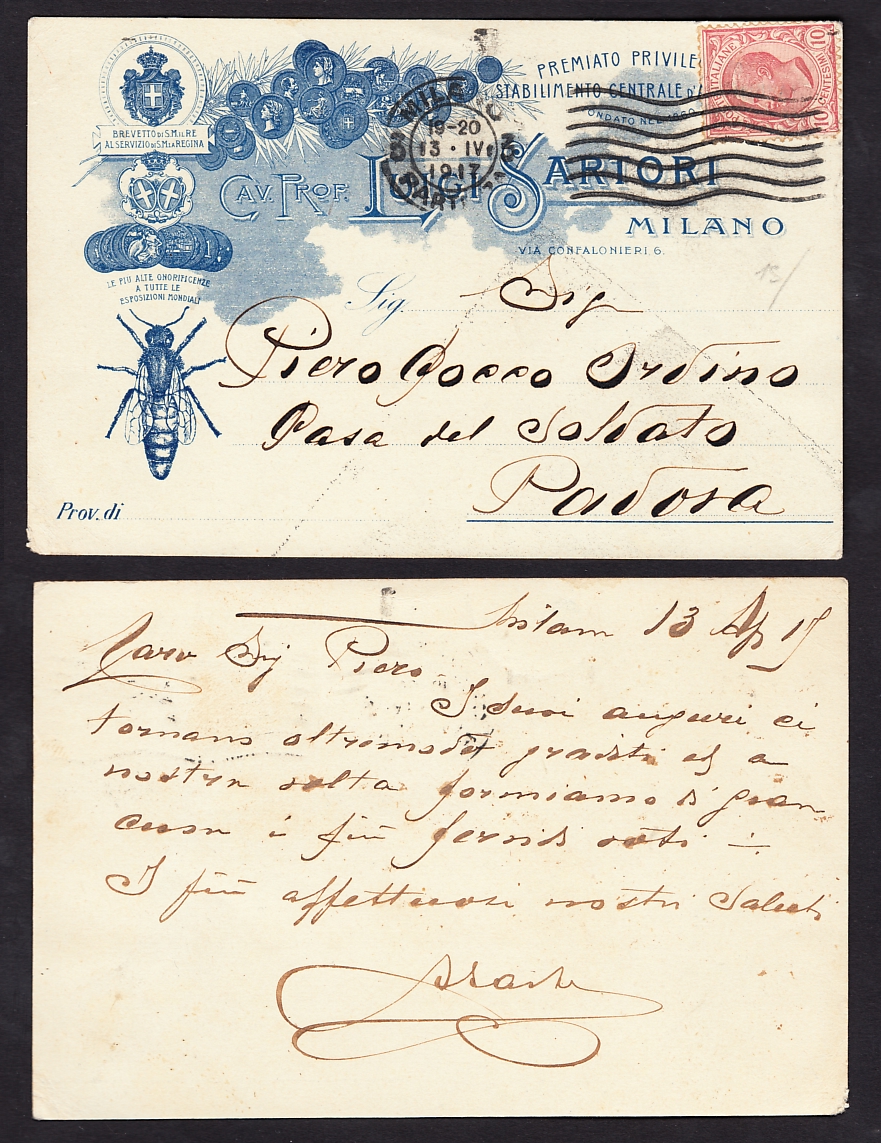 PREMIATO PRIVILE
STABILIMENTO CENTRALE D'A
FONDATO NEL
10 CENTESIMI 10
ITALIANE
MILANO
19-20
13 · IV
1917
PARTENZA
BREVETTO DI S.M. IL RE
AL SERVIZIO DI S.M. LA REGINA
CAV. PROF. LUIGI SARTORI
MILANO
VIA CONFALONIERI, 6.
LE PIÙ ALTE ONORIFICENZE
A TUTTE LE
ESPOSIZIONI MONDIALI
13/
Sig. Sig
Piero Cocco Ordino
Casa del Soldato
Padova
Prov. di
Milano 13 Ap 17
Caro Sig Piero
I suoi auguri ci
tornano oltremodo graditi ed a
nostra volta formiamo di gran
cuore i più fervidi voti —
I più affettuosi nostri saluti